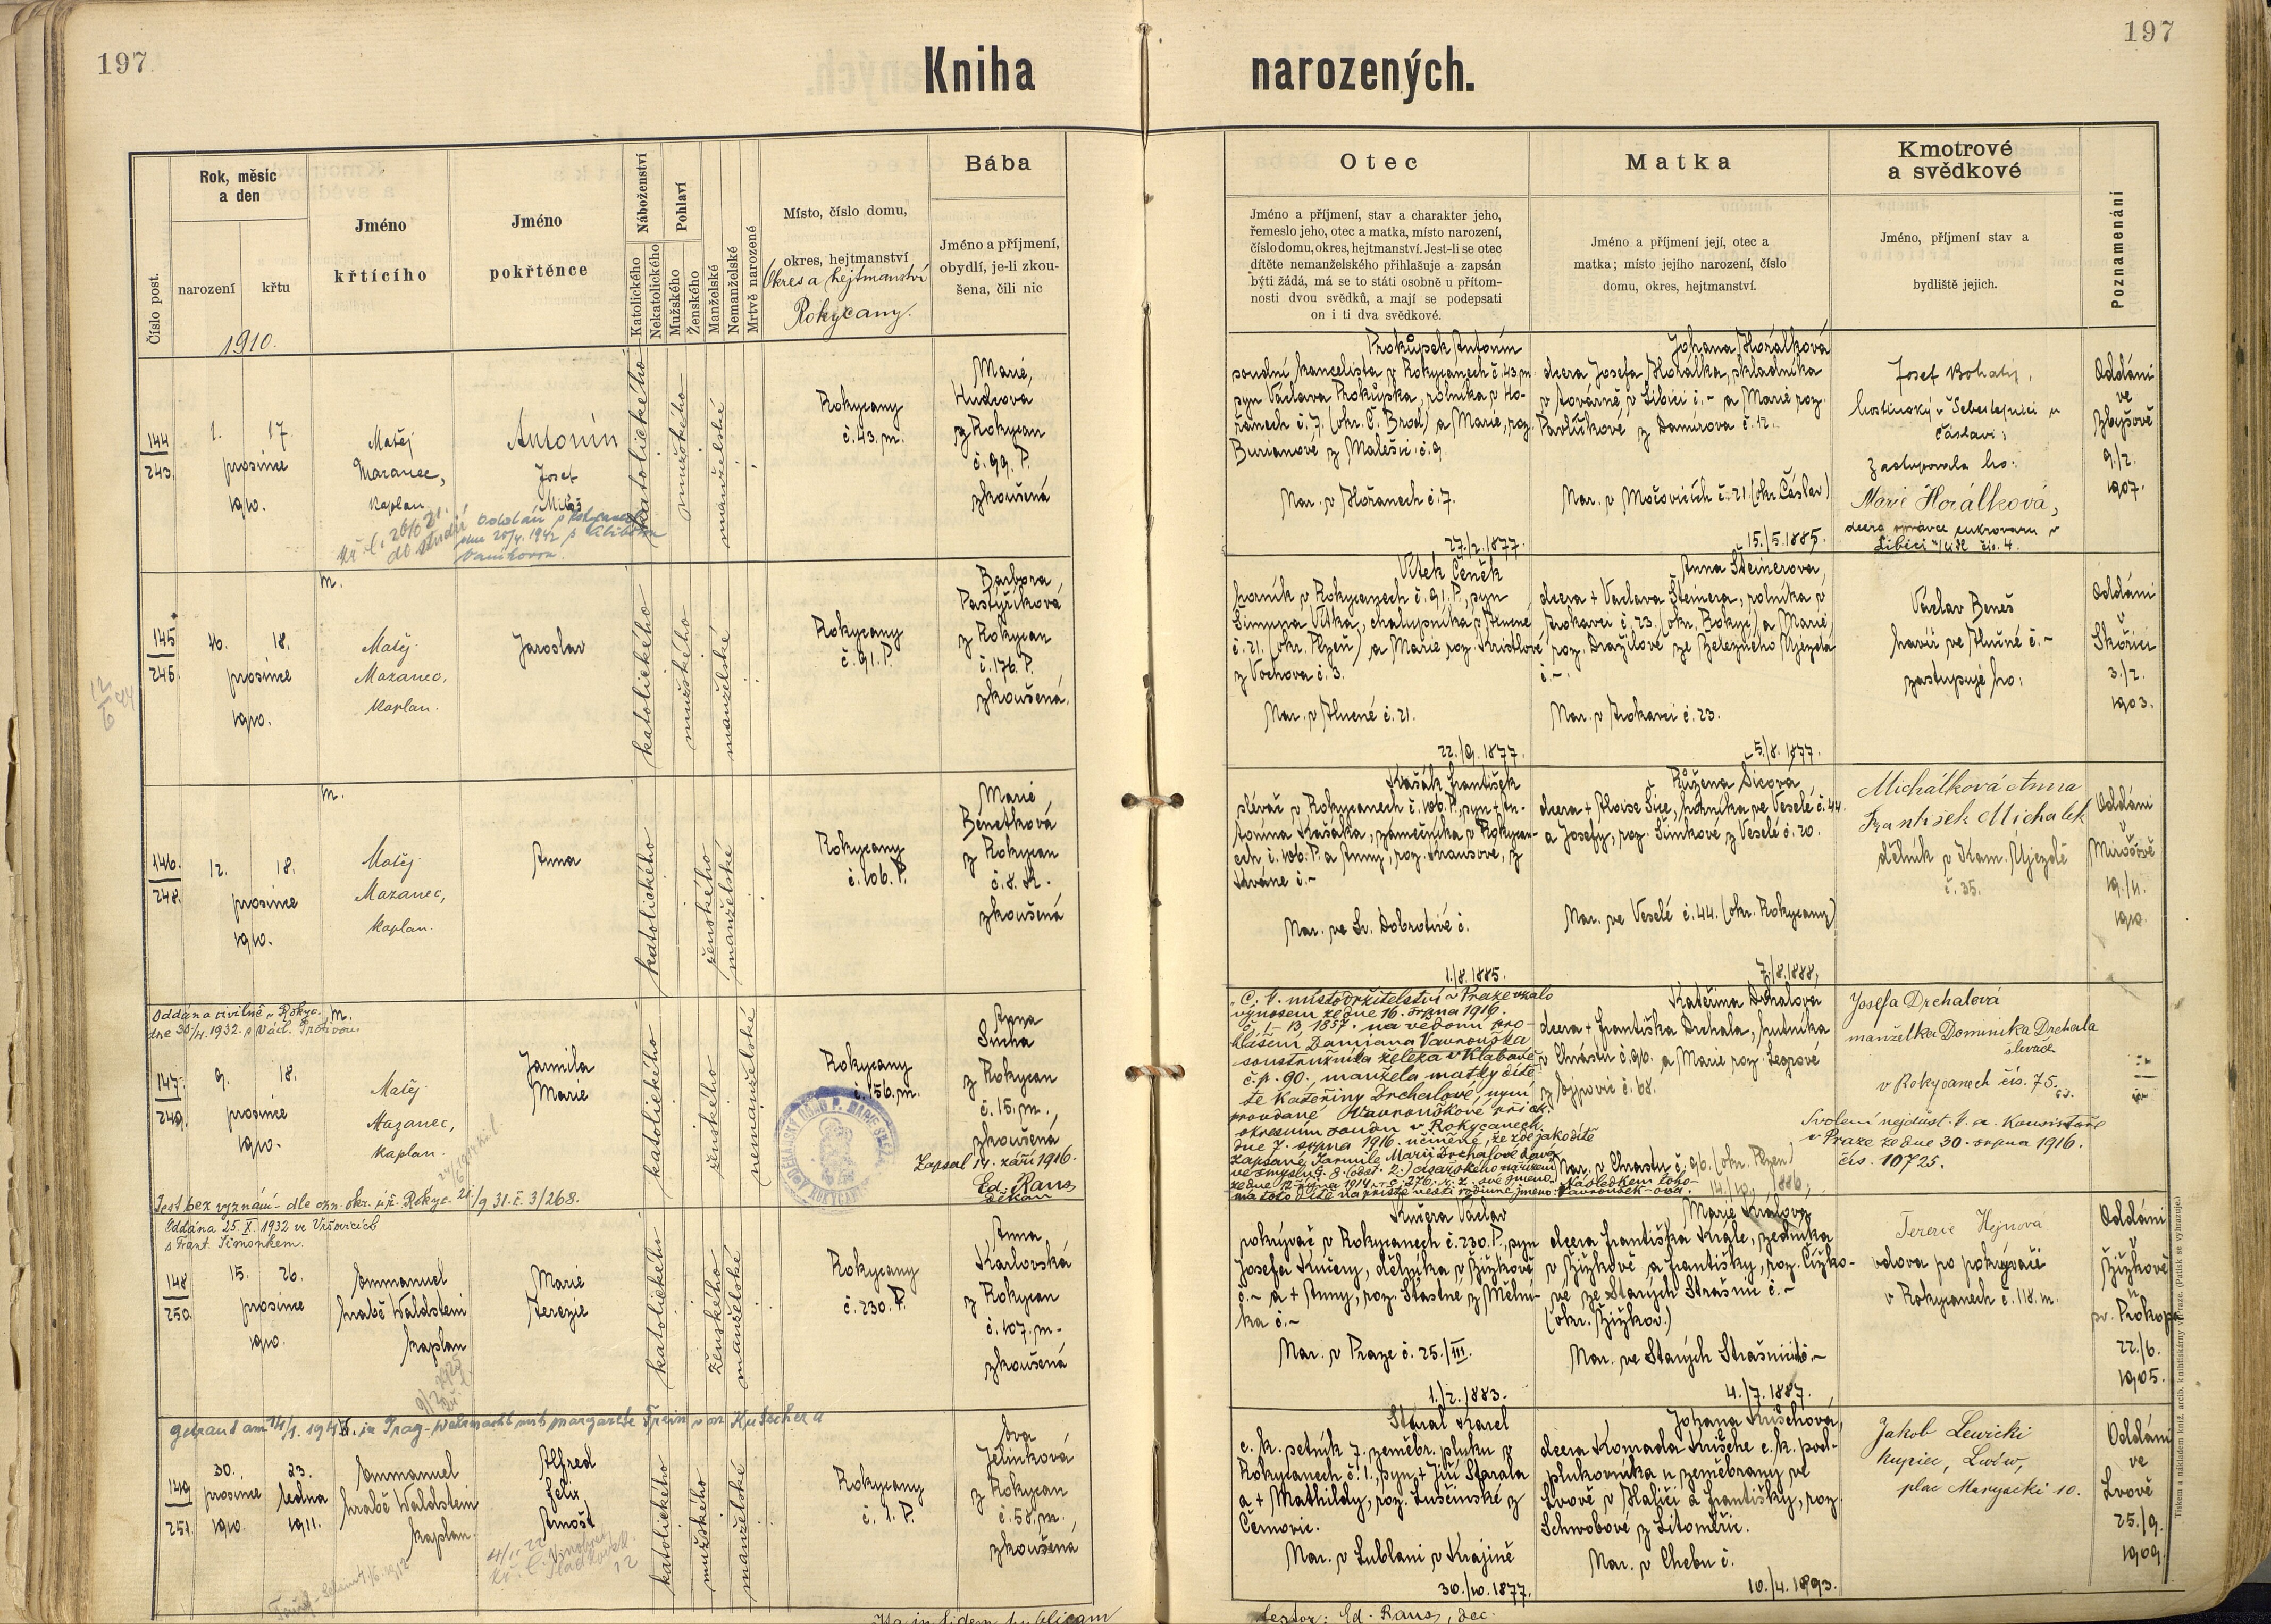 197
197
Kniha narozených.
Číslo post.
Rok, měsíc
a den
narození
křtu
1910.
Jméno
křtícího
Jméno
pokřtěnce
Náboženství
Katolického
Nekatolického
Pohlaví
Mužského
Ženského
Manželské
Nemanželské
Mrtvě narozené
Místo, číslo domu,
okres, hejtmanství
Okres a hejtmanství
Rokycany.
Bába
Jméno a příjmení,
obydlí, je-li zkou-
šena, čili nic
Otec
Jméno a příjmení, stav a charakter jeho,
řemeslo jeho, otec a matka, místo narození,
číslo domu, okres, hejtmanství. Jest-li se otec
dítěte nemanželského přihlašuje a zapsán
býti žádá, má se to státi osobně u přítom-
nosti dvou svědků, a mají se podepsati
on i ti dva svědkové.
Matka
Jméno a příjmení její, otec a
matka; místo jejího narození, číslo
domu, okres, hejtmanství.
Kmotrové
a svědkové
Jméno, příjmení stav a
bydliště jejich.
Poznamenání
144
243.
1. 17.
prosince
1910.
Matěj
Mazanec,
kaplan
Antonín
Josef
Miloš
katolického
mužského
manželské
Rokycany
č. 43. m.
Marie,
Hudcová
z Rokycan
č. 99. P.
zkoušená
Prokůpek Antonín
soudní kancelista v Rokycanech č. 43 m.
syn Václava Prokůpka, rolníka v Ho-
řanech č. 7. (okr. Č. Brod) a Marie, roz.
Burianové z Malešic č. 9.
Nar. v Hořanech č. 7.
27./2. 1877.
Johana Horálková
dcera Josefa Horálka, skladníka
v továrně v Libici č. - a Marie roz.
Pavlíčkové z Damírova č. 12.
Nar. v Močovicích č. 21 (okr. Čáslav)
15./5. 1885.
Josef Bohatý,
hostinský v
Čáslavi;
zastupovala ho:
Marie Horálková,
dcera správce cukrovaru v
Libici n/Cidl čis. 4.
Oddáni
ve
Zbýšově
9./2.
1907.
Oddán v Rokycanech
dne 25/4. 1942 s Libuší
Vaníkovou.
145
245.
m.
10. 18.
prosince
1910.
Matěj
Mazanec,
kaplan.
Jaroslav
katolického
mužského
manželské
Rokycany
č. 91. P.
Barbora
Pastýříková
z Rokycan
č. 176. P.
zkoušená.
Vítek Čeněk
horník v Rokycanech č. 91. P., syn
Šimona Vítka, chalupníka v Tlučné
č. 21. (okr. Plzeň) a Marie roz. Kristlové
z Vochova č. 3.
Nar. v Tlučné č. 21.
22./9. 1877.
Anna Šteinerova
dcera + Václava Šteinera, rolníka v
č. 23. (okr. Rokyc) a Marie,
roz. Dražilové ze Železného Újezda
č. -.
Nar. v č. 23.
5./8. 1877.
Václav Beneš
havíř ve Tlučné č. -
zastupuje ho:
Oddáni
v
Skořici
3./2.
1903.
146.
248.
m.
12. 18.
prosince
1910.
Matěj
Mazanec,
kaplan.
Anna
katolického
ženského
manželské
Rokycany
č. 106. P.
Marie
Benetková
z Rokycan
č. 8. N.
zkoušená
Kašák František
slévač v Rokycanech č. 106. P., syn + An-
tonína Kašáka, zámečníka v Rokycan-
ech č. 106. P. a Anny, roz. Krausové, z
č. -
Nar. ve Sv. Dobrotivé č.
1./8. 1885.
Růžena Šicová
dcera + Aloise Šice, hutníka ve Veselé č. 44.
a Josefy, roz. Šimkové z Veselé č. 20.
Nar. ve Veselé č. 44. (okr. Rokycany)
7./8. 1888,
Michálková Anna
František Michalek
dělník v Kam. Újezdě
č. 35.
Oddáni
v
Mirošově
19./11.
1910.
Oddána civilně v Rokyc.
dne 30./4. 1932. s Václ.
m.
147.
249.
9. 18.
prosince
1910.
Matěj
Mazanec,
kaplan.
Jarmila
Marie
katolického
ženského
nemanželské
Rokycany
č. 156. m.
Anna
Suchá
z Rokycan
č. 15. m.,
zkoušená
Zapsal 14. září 1916.
Ed. Raus,
děkan
Jest bez vyznání - dle ozn. okr. úř. Rokyc. 21./9 31. č. 3/268.
C. k. místodržitelství v Praze vzalo
výnosem ze dne 16. srpna 1916.
č. 1-13, 1857. na vědomí pro-
hlášení Damiana Vavrouška
soustružníka železa v Klabavě
č. p. 90., manžela matky dítě-
te Kateřiny Drchalové, nyní
provdané Vavrouškové při c. k.
okresním soudu v Rokycanech
dne 7. srpna 1916. učiněné, že zde jako dítě
zapsané Jarmile Marii Drchalové dává
ve smyslu § 8 (odst. 2.) císařského nařízení
ze dne 12. října 1914. č. 276. ř. z. své jméno. Následkem toho
má toto dítě na příště vésti rodinné jméno: Vavroušek-ová.
Kateřina Drchalova
dcera + Františka Drchala, hutníka
v Chrástu č. 96. a Marie roz. Legrové
z Ejpovic č. 68.
Nar. v Chrástu č. 96. (okr. Plzeň)
14./10. 1886,
Josefa Drchalová
manželka Dominika Drchala
slévače
v Rokycanech čís. 75.
Svolení nejdůst. k. a. Konsistoře
v Praze ze dne 30. srpna 1916.
čís. 10725.
Oddána 25. X. 1932 ve Vršovicích
s Frant. Šimonkem.
148
250.
15. 26.
prosince
1910.
Emmanuel
hrabě Waldstein
kaplan
Marie
Terezie
katolického
ženského
manželské
Rokycany
č. 230. P.
Anna
Karlovská
z Rokycan
č. 107. m.
zkoušená
Kučera Václav
pokrývač v Rokycanech č. 230. P., syn
Josefa Kučery, dělníka v Žižkově
č. - a + Anny, roz. Šťastné z Mělní-
ka č. -
Nar. v Praze č. 25./III.
1./2. 1883.
Marie Králova
dcera Františka Krále, zedníka
v Žižkově a Františky, roz. Čížko-
vé ze Starých Strašnic č. -
(okr. Žižkov.)
Nar. ve Starých Strašnicích č. -
4./7. 1887.
Terezie Hejnová
vdova po pokrývači
v Rokycanech č. 118. m.
Oddáni
v
Žižkově
u
sv. Prokopa
22./6.
1905.
getraut am 14/1. 1941. in Prag-Wehrmacht mit Margarete
149
251.
30. 23.
prosince ledna
1910. 1911.
Emmanuel
hrabě Waldstein
kaplan.
Alfred
Felix
Arnošt
katolického
mužského
manželské
Rokycany
č. 1. P.
Eva
Jelínková
z Rokycan
č. 58. m.,
zkoušená
Stáral Karel
c. k. setník 7. zeměbr. pluku v
Rokycanech č. 1., syn + Jiří Starala
a + Mathildy, roz. Lusčinské z
Černovic.
Nar. v Lublani v Krajině
30./10. 1877.
Johana Krušchová,
dcera Konrada Krusche c. k. pod-
plukovníka u zeměbrany ve
Lvově v Haliči a Františky, roz.
Schwobové z Litoměřic.
Nar. v Chebu č.
10./4. 1893.
Jakob Lewicki
Kupiec, Lwów,
plac Maryacki 10.
Oddáni
ve
Lvově
25./9.
1909.
Ita in fidem publicam
testor: Ed. Raus, dec.
Tiskem a nákladem kníž. arcib. knihtiskárny v Praze. (Patisk se vyhrazuje.)